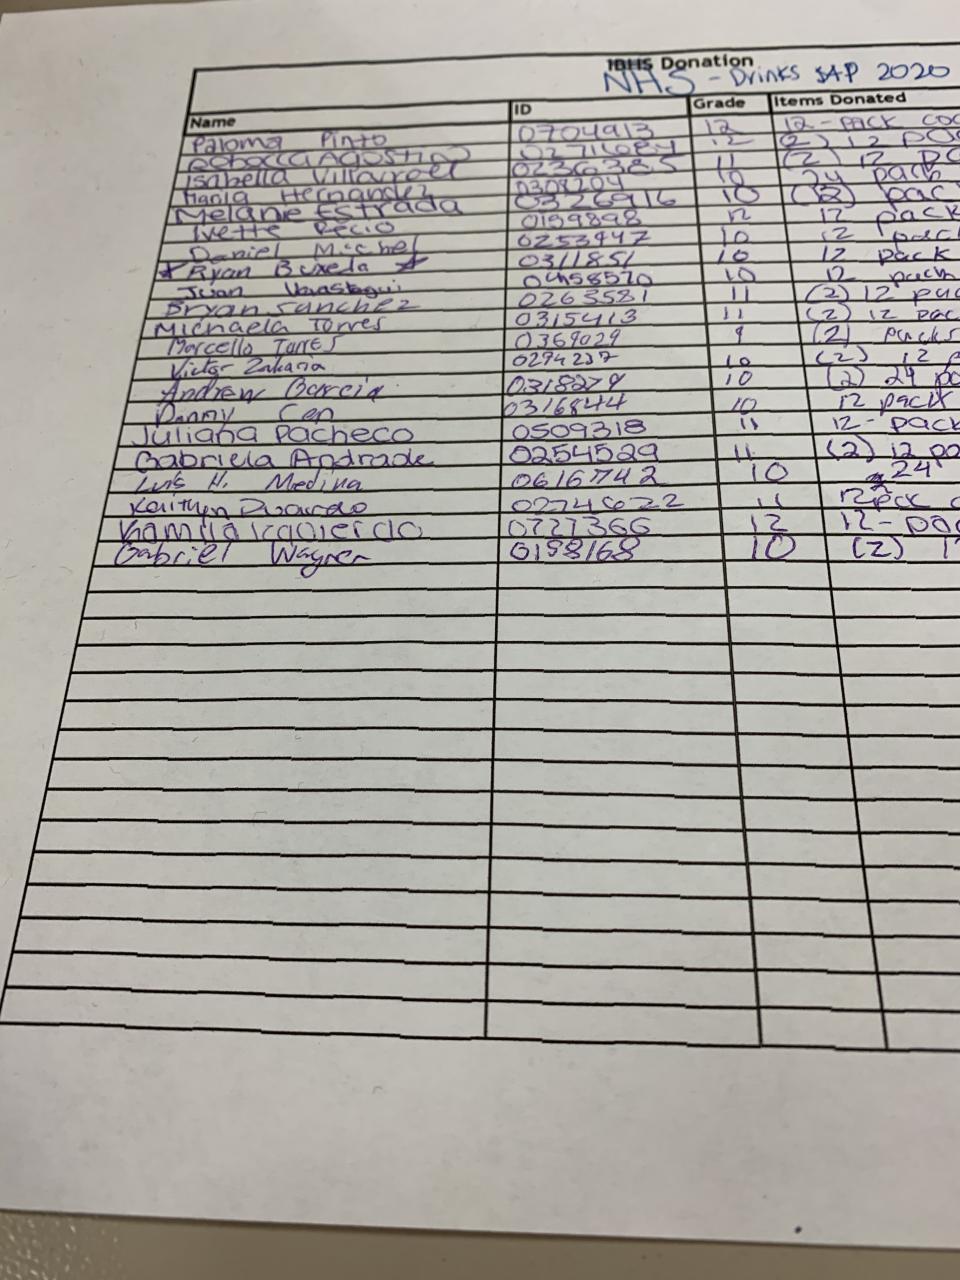 IBHS Donation
NHS - Drinks SAP 2020
Name ID Grade Items Donated
Paloma Pinto 0704913 12 12-pack
12 (2) 12
Isabella Villarroel 02363285 11 (2) 12
Hernandez 0308204 10 24 pack
Melanie Estrada 0326916 10 pac
Ivette Recio 0159898 12 12 pack
Daniel Michel 0253447 10 12 pack
Ryan Buxeda 0311851 10 12 pack
Juan 0458570 10 12 pack
Bryan Sanchez 0263581 11 (2) 12 pac
Michaela Torres 0315413 11 (2) 12 pac
Marcello Torres 0369029 9 (2) packs
Victor Zakaria 0294237 10 (2) 12 p
Andrew Garcia 0318279 10 (2) 24 pa
Danny Cen 0316844 10 12 pack
Juliana Pacheco 0509318 11 12-pack
Gabriela Andrade 0254529 11 (2) 12 pa
Luis H. Medina 0616742 10 24
Kaitlyn 0274622 11 12 pck
0727366 12 12-pac
Gabriel Wagner 0198168 10 (2) 1